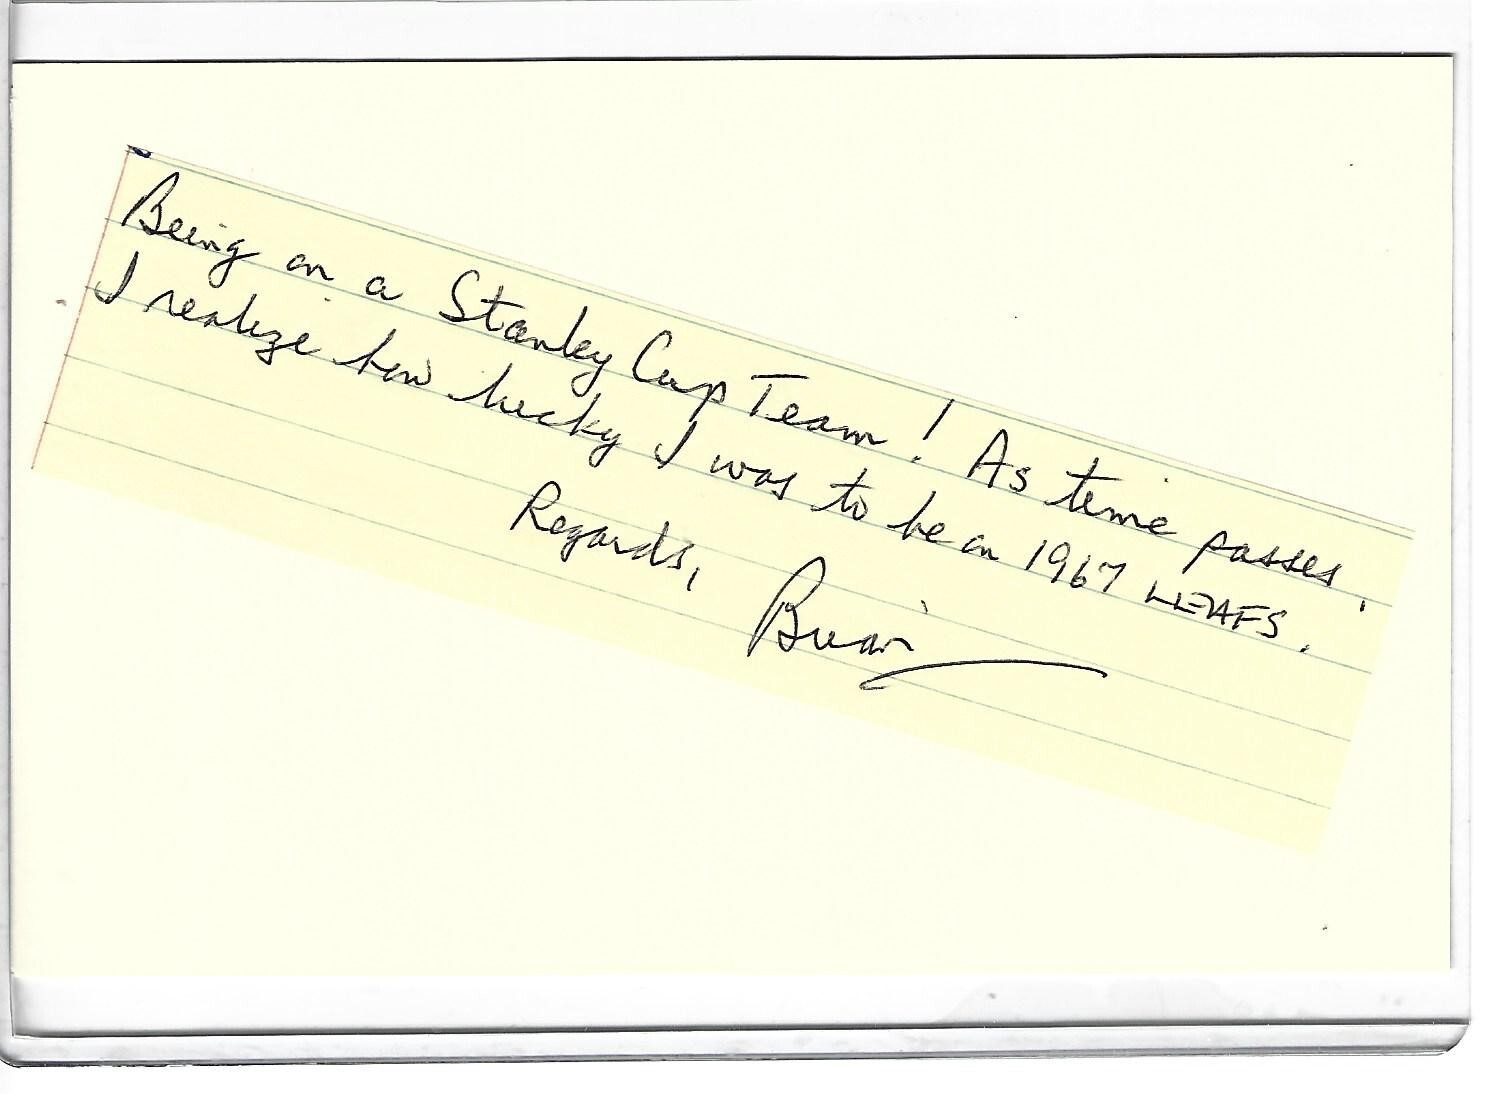 Being on a Stanley Cup Team! As time passes
I realize how lucky I was to be on 1967 LEAFS.
Regards,
Brian